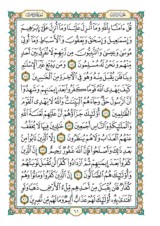 قُلْ ءَامَنَّا بِٱللَّهِ وَمَآ أُنزِلَ عَلَيْنَا وَمَآ أُنزِلَ عَلَىٰٓ إِبْرَٰهِيمَ
وَإِسْمَٰعِيلَ وَإِسْحَٰقَ وَيَعْقُوبَ وَٱلْأَسْبَاطِ وَمَآ أُوتِىَ
مُوسَىٰ وَعِيسَىٰ وَٱلنَّبِيُّونَ مِن رَّبِّهِمْ لَا نُفَرِّقُ بَيْنَ أَحَدٍ
مِّنْهُمْ وَنَحْنُ لَهُۥ مُسْلِمُونَ وَمَن يَبْتَغِ غَيْرَ ٱلْإِسْلَٰمِ
دِينًا فَلَن يُقْبَلَ مِنْهُ وَهُوَ فِى ٱلْءَاخِرَةِ مِنَ ٱلْخَٰسِرِينَ
كَيْفَ يَهْدِى ٱللَّهُ قَوْمًا كَفَرُوا۟ بَعْدَ إِيمَٰنِهِمْ وَشَهِدُوٓا۟
أَنَّ ٱلرَّسُولَ حَقٌّ وَجَآءَهُمُ ٱلْبَيِّنَٰتُ وَٱللَّهُ لَا يَهْدِى ٱلْقَوْمَ
ٱلظَّٰلِمِينَ أُو۟لَٰٓئِكَ جَزَآؤُهُمْ أَنَّ عَلَيْهِمْ لَعْنَةَ ٱللَّهِ
وَٱلْمَلَٰٓئِكَةِ وَٱلنَّاسِ أَجْمَعِينَ خَٰلِدِينَ فِيهَا لَا يُخَفَّفُ
عَنْهُمُ ٱلْعَذَابُ وَلَا هُمْ يُنظَرُونَ إِلَّا ٱلَّذِينَ تَابُوا۟
مِنۢ بَعْدِ ذَٰلِكَ وَأَصْلَحُوا۟ فَإِنَّ ٱللَّهَ غَفُورٌ رَّحِيمٌ إِنَّ ٱلَّذِينَ
كَفَرُوا۟ بَعْدَ إِيمَٰنِهِمْ ثُمَّ ٱزْدَادُوا۟ كُفْرًا لَّن تُقْبَلَ تَوْبَتُهُمْ
وَأُو۟لَٰٓئِكَ هُمُ ٱلضَّآلُّونَ إِنَّ ٱلَّذِينَ كَفَرُوا۟ وَمَاتُوا۟ وَهُمْ
كُفَّارٌ فَلَن يُقْبَلَ مِنْ أَحَدِهِم مِّلْءُ ٱلْأَرْضِ ذَهَبًا وَلَوِ
ٱفْتَدَىٰ بِهِۦٓ أُو۟لَٰٓئِكَ لَهُمْ عَذَابٌ أَلِيمٌ وَمَا لَهُم مِّن نَّٰصِرِينَ
٦١